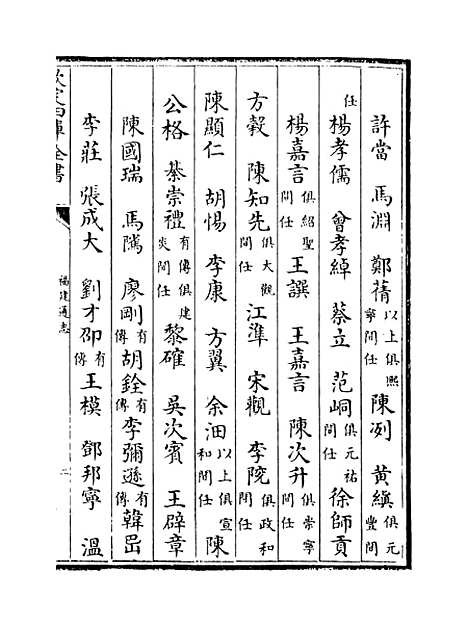 許當　馬淵　鄭蒨以上俱熙寧間任陳冽　黃縝俱元豐間
任楊孝儒　曾孝綽　蔡立　范峒俱元祐間任徐師貢
楊嘉言俱紹聖間任王譔　王嘉言　陳次升俱崇寧間任
方轂　陳知先俱大觀間任江準　宋觀　李院俱政和間任
陳顯仁　胡惕　李康　方翼　余沺以上俱宣和間任陳
公格　綦崇禮有傳俱建炎間任黎確　吳次賓　王辟章
陳國瑞　馬隲　廖剛有傳胡銓有傳李彌遜有傳韓岊
李莊　張成大　劉才邵有傳王模　鄧邦寧　溫
欽定四庫全書
福建通志
二